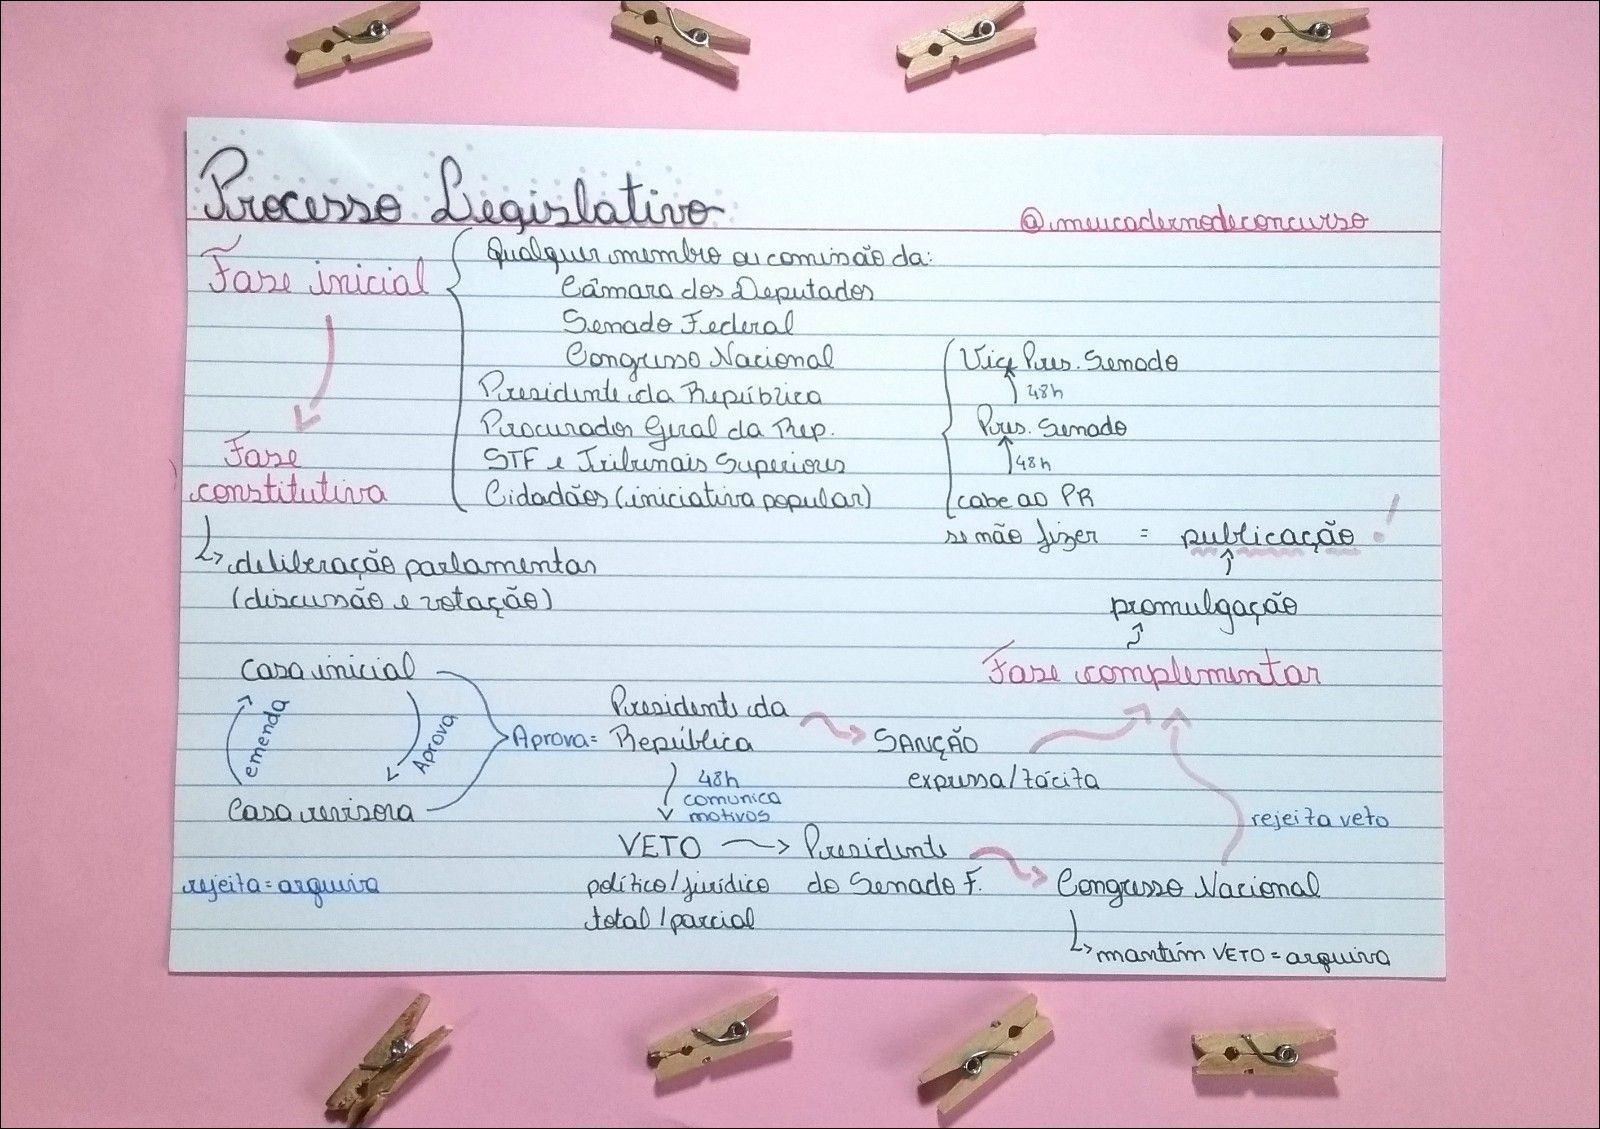 Processo Legislativo
@meucadernodeconcurso
Fase inicial
Qualquer membro ou comissão da:
Câmara dos Deputados
Senado Federal
Congresso Nacional
Presidente da República
Procurador Geral da Rep.
STF e Tribunais Superiores
Cidadãos (iniciativa popular)
Fase
constitutiva
deliberação parlamentar
(discussão e votação)
Casa inicial
emenda
Aprova
Casa revisora
rejeita = arquiva
Aprova =
Presidente da
República
48h
comunica
motivos
VETO
político/jurídico
total/parcial
Presidente
do Senado F.
SANÇÃO
expressa/tácita
Congresso Nacional
mantém VETO = arquiva
rejeita veto
Fase complementar
promulgação
publicação!
Vice Pres. Senado
48h
Pres. Senado
48h
cabe ao PR
se não fizer =